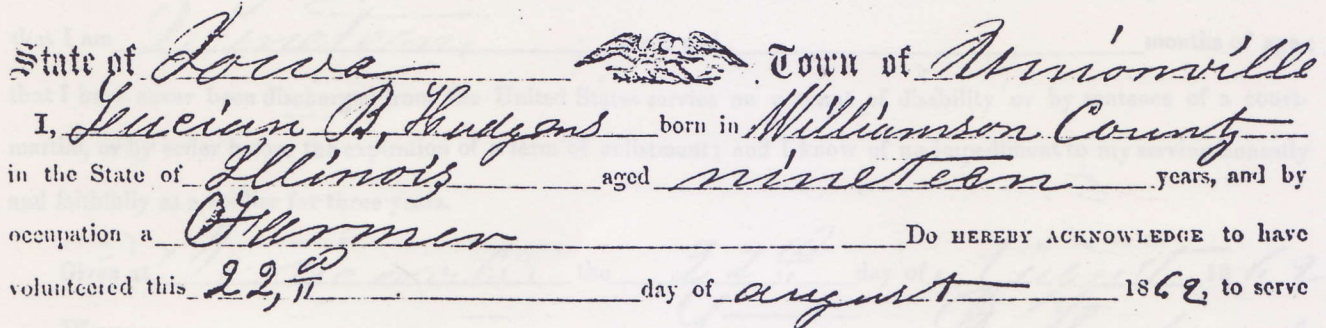 State of Iowa Town of Unionville
I, Lucian B. Hudgens born in Williamson County
in the State of Illinois aged nineteen years, and by
occupation a Farmer Do HEREBY ACKNOWLEDGE to have
volunteered this 22, day of august 1862, to serve